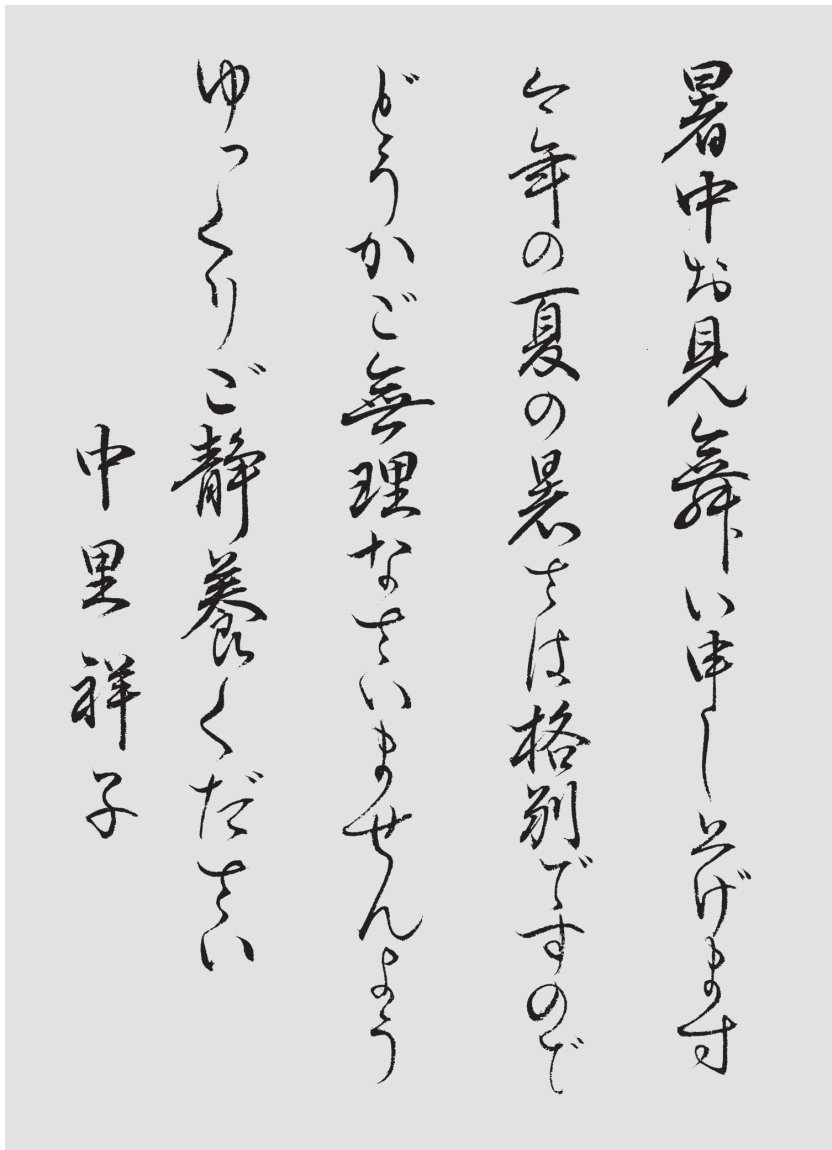 暑中お見舞い申し上げます
今年の夏の暑さは格別ですので
どうかご無理なさいませんよう
ゆっくりご静養ください
中里祥子